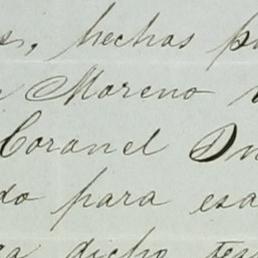 hechos
Moreno
Coronel
do para esa
dicho